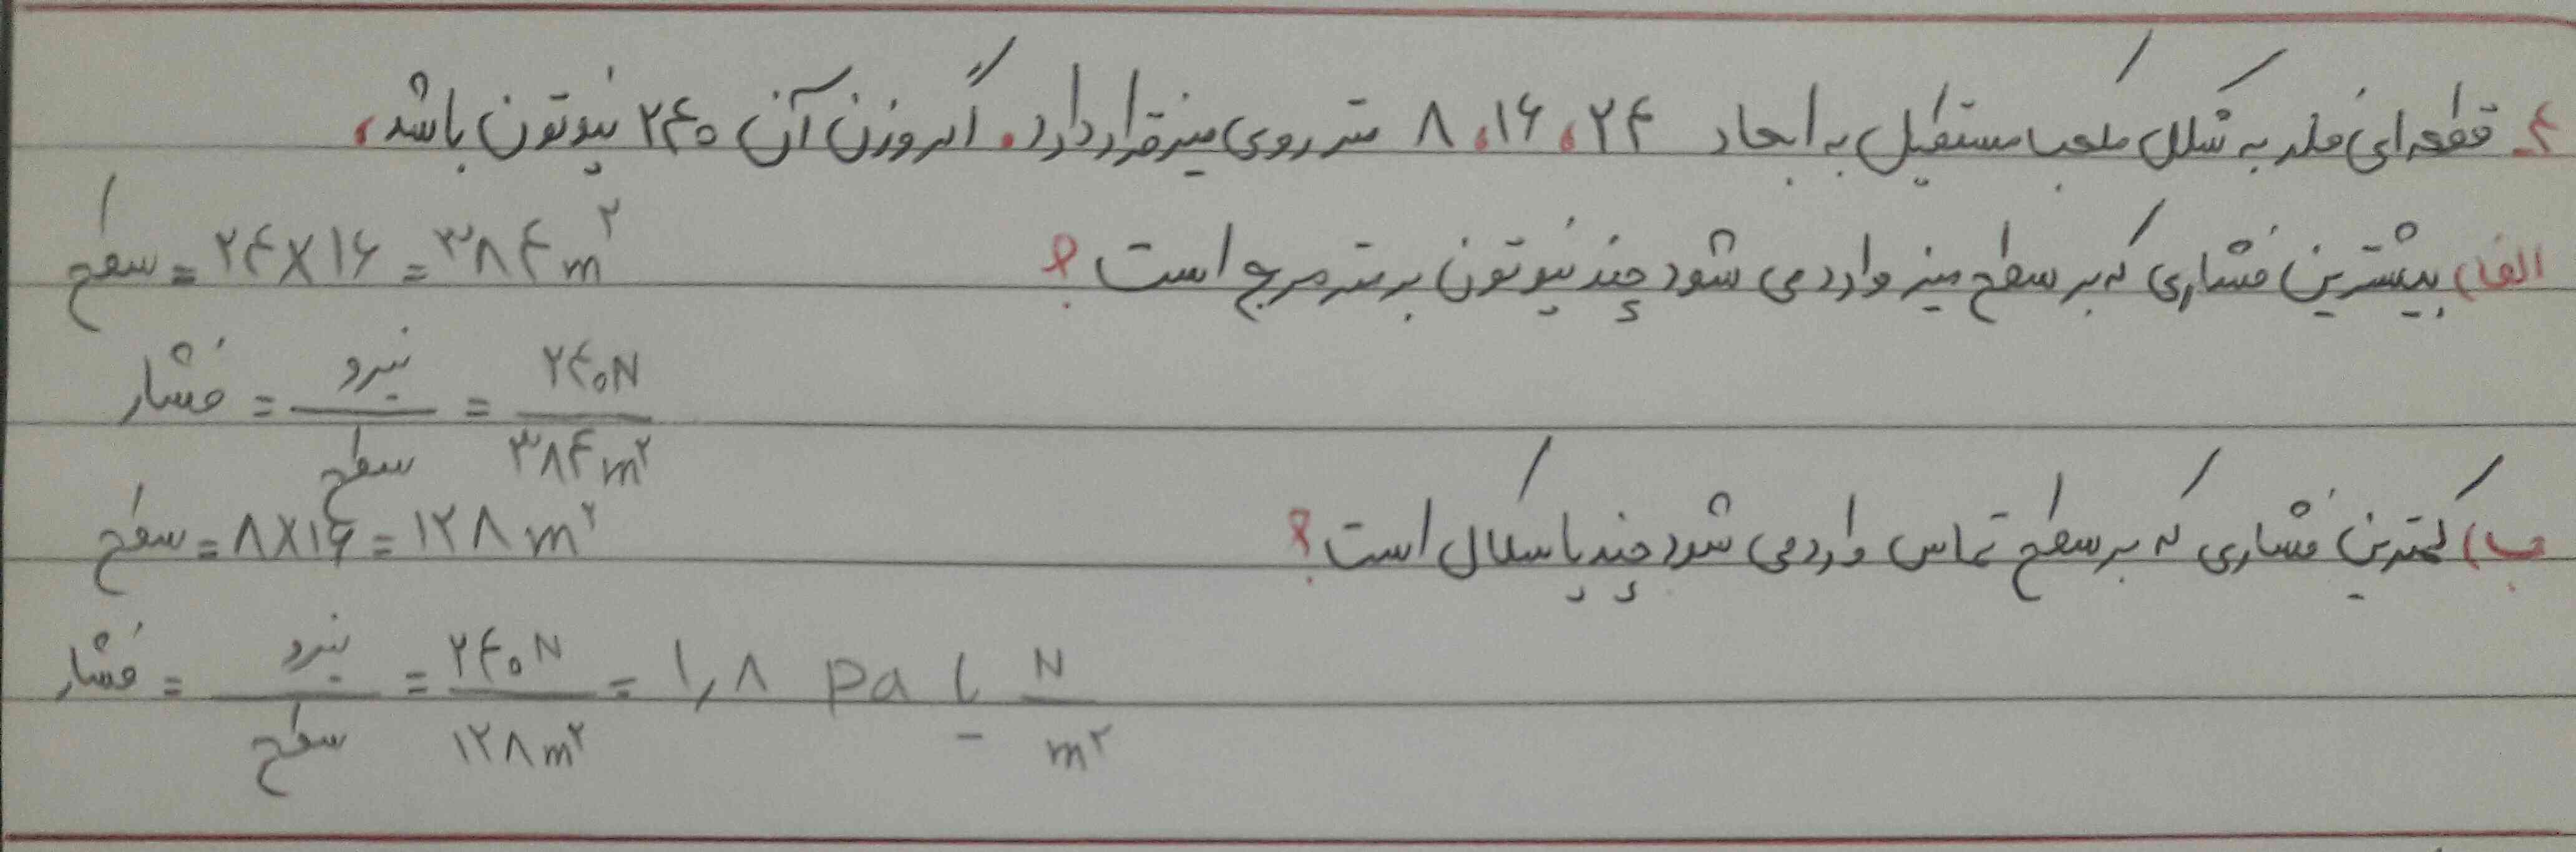 ۴- قطعه‌ای فلز به شکل مکعب مستطیل به ابعاد ۲۴، ۱۶، ۸ متر روی میز قرار دارد. اگر وزن آن ۲۴۰ نیوتون باشد،
الف) بیشترین فشاری که بر سطح میز وارد می شود چند نیوتون بر متر مربع است؟
سطح = ۲۴ × ۱۶ = ۳۸۴ m²
فشار = نیرو / سطح = ۲۴۰ N / ۳۸۴ m²
ب) کمترین فشاری که بر سطح تماس وارد می شود چند پاسکال است؟
سطح = ۸ × ۱۶ = ۱۲۸ m²
فشار = نیرو / سطح = ۲۴۰ N / ۱۲۸ m² = ۱,۸ pa یا N / m²